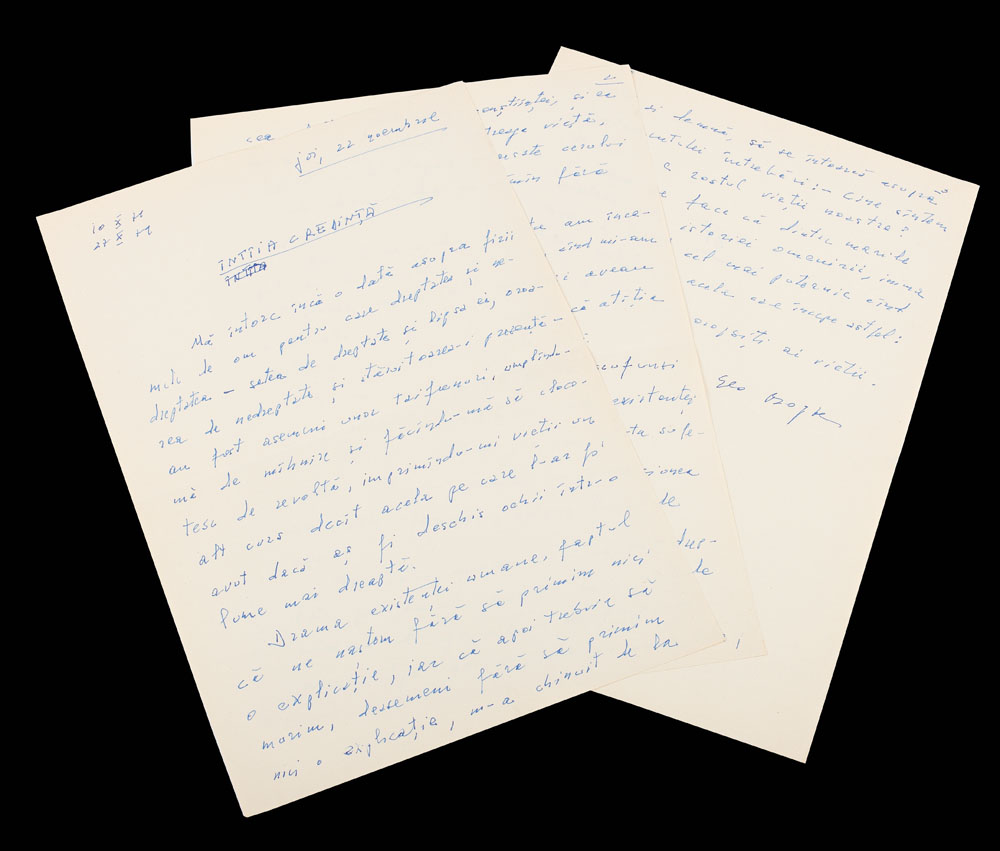 joi, 22 noembrie
10 X H
27 X H
INTÎIA CREDINȚĂ
INTÎIA
Mă întorc încă o dată asupra firii
mele de om pentru care dreptatea și ne-
dreptatea — setea de dreptate și lipsa ei, oroa-
rea de nedreptate și stăruitoarea-i prezență —
au fost asemeni unor taifunuri, umplîndu-
mă de mîhnire și făcîndu-mă să cloco-
tesc de revoltă, imprimîndu-mi vieții un
alt curs decît acela pe care l-ar fi
avut dacă aș fi deschis ochii într-o
lume mai dreaptă.
Drama existenței umane, faptul
că ne naștem fără să primim nici
o explicație, iar că apoi trebuie să
murim, deasemeni fără să primim
nici o explicație, m-a chinuit de la
cea
2
conștiinței, și ea
treaga viață,
este cerului
fără
am înce-
cînd mi-am
aveau
că atîția
scufunzi
existenței
sufe-
de
de
1
3
și demnă, să se întoarcă asupra
întrebări: — Cine sîntem
rostul vieții noastre?
face că dintre marile
istoriei omenirii, inima
cel mai puternic cînd
acela care începe astfel:
oropsiți ai vieții.
Geo Bogza